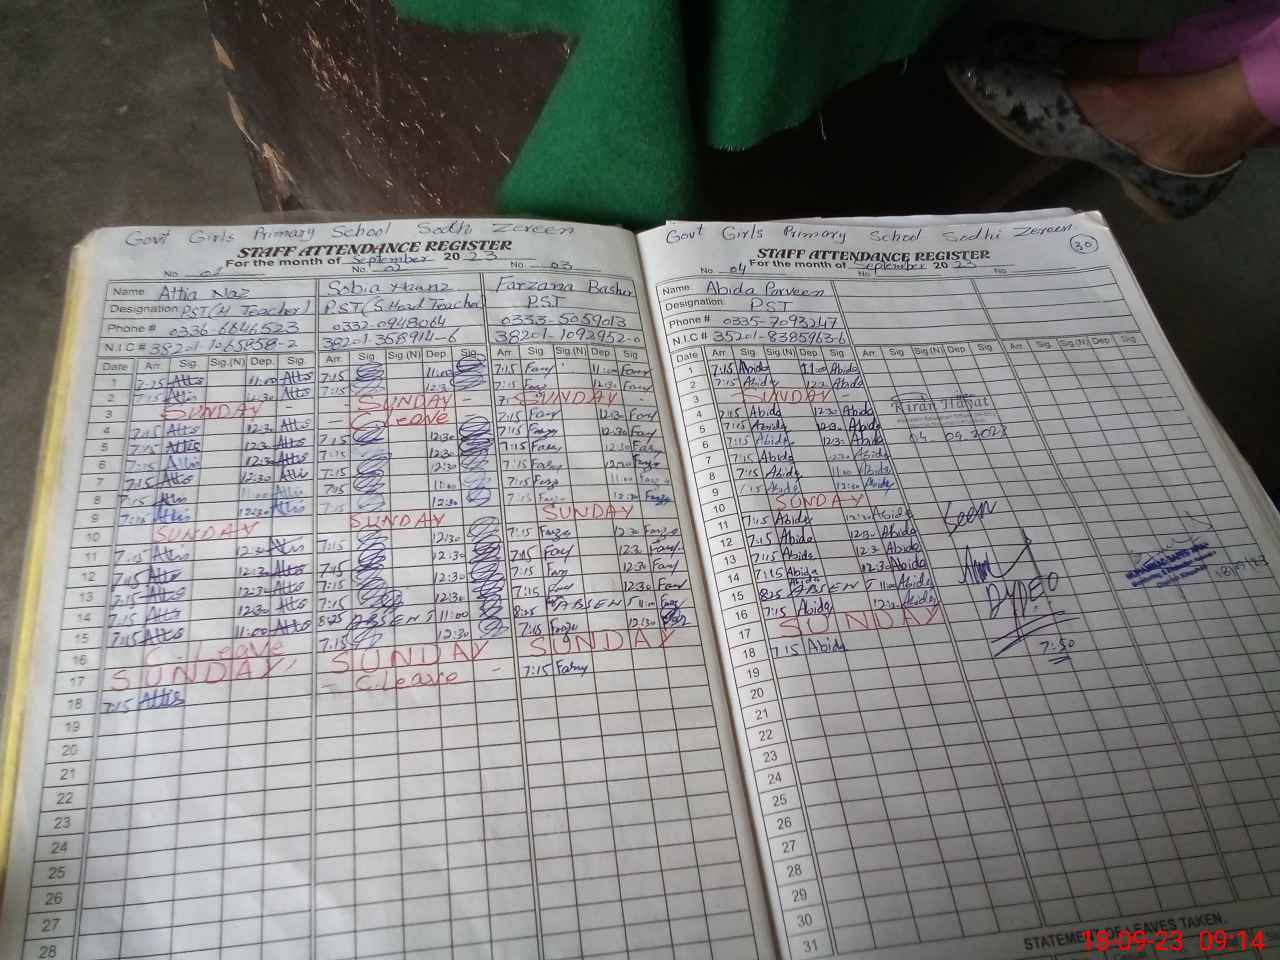 Govt Girls Primary School Sodhi Zereen
STAFF ATTENDANCE REGISTER
For the month of September 2023
No 01 No 02 No 03
Name Attia Naz Farzana Bashir
Designation: PST (H. Teacher) P.ST (S. Head Teacher) P.ST
Phone # 0336-6646523 0332-0948064 0333-5059013
N.I.C # 38201-1065858-2 38201-358914-6 38201-1092952-0
Date Arr. Sig. Sig.(N) Dep. Sig. Arr. Sig. Sig.(N) Dep. Sig. Arr. Sig. Sig.(N) Dep. Sig.
1 7:15 Attia 11:00 Attia 7:15 11:00 7:15 Farz 11:00 Farz
2 7:15 Attia 12:30 Attia 7:15 12:30 7:15 Farz 12:30 Farz
3 SUNDAY - - SUNDAY - SUNDAY -
4 7:15 Attia 12:30 Attia - C Leave - 7:15 Farz 12:30 Farz
5 7:15 Attia 12:30 Attia 7:15 12:30 7:15 Farz 12:30 Farz
6 7:15 Attia 12:30 Attia 7:15 12:30 7:15 Farz 12:30 Farz
7 7:15 Attia 12:30 Attia 7:15 12:30 7:15 Farz 12:30 Farz
8 7:15 Attia 11:00 Attia 7:15 11:00 7:15 Farz 11:00 Farz
9 7:15 Attia 12:30 Attia 7:15 12:30 7:15 Farz 12:30 Farz
10 SUNDAY SUNDAY SUNDAY
11 7:15 Attia 12:30 Attia 7:15 12:30 7:15 Farz 12:30 Farz
12 7:15 Attia 12:30 Attia 7:15 12:30 7:15 Farz 12:30 Farz
13 7:15 Attia 12:30 Attia 7:15 12:30 7:15 Farz 12:30 Farz
14 7:15 Attia 12:30 Attia 7:15 12:30 7:15 Farz 12:30 Farz
15 7:15 Attia 11:00 Attia 8:25 ABSENT 11:00 8:25 ABSENT 11:00 Farz
16 C. Leave 7:15 12:30 7:15 Farz 12:30
17 SUNDAY SUNDAY SUNDAY
18 7:15 Attia - C. Leave - 7:15 Farz
19
20
21
22
23
24
25
26
27
28
Govt Girls Primary School Sodhi Zereen
30
STAFF ATTENDANCE REGISTER
For the month of September 2023
No. 04 No.
Name: Abida Parveen
Designation: PST
Phone # 0335-7093247
N.I.C # 35201-8385963-6
Date Arr. Sig. Sig.(N) Dep. Sig. Arr. Sig. Sig.(N) Dep. Sig. Arr. Sig. Sig.(N) Dep. Sig.
1 7:15 Abida 11:00 Abida
2 7:15 Abida 12:30 Abida
3 - SUNDAY -
4 7:15 Abida 12:30 Abida Kiran Hayat
5 7:15 Abida 12:30 Abida
6 7:15 Abida 12:30 Abida 04 09 2023
7 7:15 Abida 12:30 Abida
8 7:15 Abida 11:00 Abida
9 7:15 Abida 12:30 Abida
10 SUNDAY
11 7:15 Abida 12:30 Abida Seen
12 7:15 Abida 12:30 Abida
13 7:15 Abida 12:30 Abida
14 7:15 Abida 12:30 Abida
15 8:25 ABSENT 11:00 Abida
16 7:15 Abida 12:30 Abida
17 SUNDAY
18 7:15 Abida 7:50
19
20
21
22
23
24
25
26
27
28
29
30
31
STATEMENT OF LEAVES TAKEN.
18-09-23 09:14